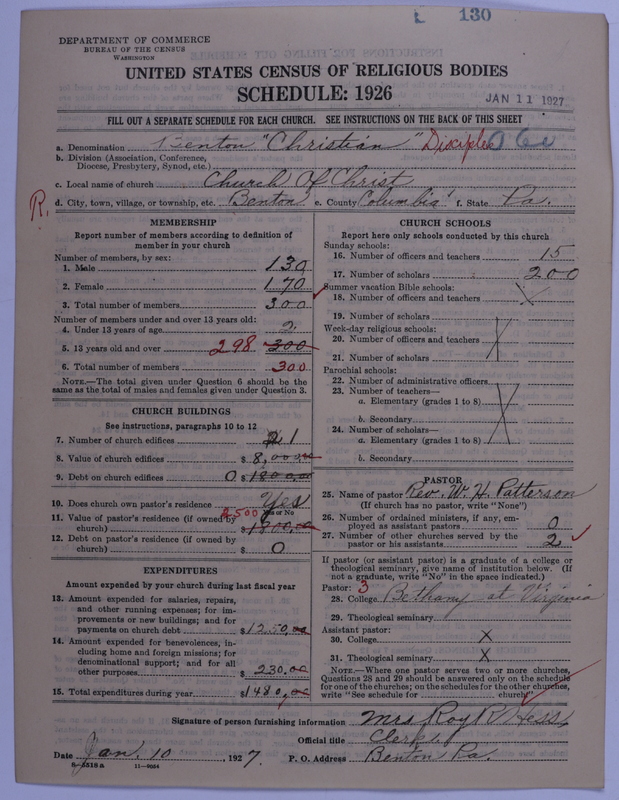 130
DEPARTMENT OF COMMERCE
BUREAU OF THE CENSUS
WASHINGTON
UNITED STATES CENSUS OF RELIGIOUS BODIES
SCHEDULE: 1926
JAN 11 1927
FILL OUT A SEPARATE SCHEDULE FOR EACH CHURCH. SEE INSTRUCTIONS ON THE BACK OF THIS SHEET
a. Denomination Benton "Christian" Disciples 060
b. Division (Association, Conference,
Diocese, Presbytery, Synod, etc.)
c. Local name of church Church Of Christ
R. d. City, town, village, or township, etc. Benton e. County Columbia f. State Pa.
MEMBERSHIP
Report number of members according to definition of
member in your church
Number of members, by sex:
1. Male 130
2. Female 170
3. Total number of members 300
Number of members under and over 13 years old:
4. Under 13 years of age 2
5. 13 years old and over 298 300
6. Total number of members 300
NOTE.—The total given under Question 6 should be
the same as the total of males and females given under Question 3.
CHURCH BUILDINGS
See instructions, paragraphs 10 to 12
7. Number of church edifices 1
8. Value of church edifices $ 8,000.00
9. Debt on church edifices 0 $ 1800.00
10. Does church own pastor's residence Yes
Yes or No
11. Value of pastor's residence (if owned by
church) $ 1800.00
12. Debt on pastor's residence (if owned by
church) $ 0
EXPENDITURES
Amount expended by your church during last fiscal year
13. Amount expended for salaries, repairs,
and other running expenses; for im-
provements or new buildings; and for
payments on church debt $ 1250.00
14. Amount expended for benevolences, in-
cluding home and foreign missions; for
denominational support; and for all
other purposes $ 230.00
15. Total expenditures during year $ 1480.00
CHURCH SCHOOLS
Report here only schools conducted by this church
Sunday schools:
16. Number of officers and teachers 15
17. Number of scholars 200
Summer vacation Bible schools:
18. Number of officers and teachers X
19. Number of scholars
Week-day religious schools:
20. Number of officers and teachers X
21. Number of scholars
Parochial schools:
22. Number of administrative officers
23. Number of teachers—
a. Elementary (grades 1 to 8) X
b. Secondary
24. Number of scholars—
a. Elementary (grades 1 to 8)
b. Secondary
PASTOR
25. Name of pastor Rev. W. H. Patterson
(If church has no pastor, write "None")
26. Number of ordained ministers, if any, em-
ployed as assistant pastors 0
27. Number of other churches served by the
pastor or his assistants 2
If pastor (or assistant pastor) is a graduate of a college or
theological seminary, give name of institution below. (If
not a graduate, write "No" in the space indicated.)
Pastor: 3
28. College Bethany at Virginia
29. Theological seminary
Assistant pastor:
30. College X
31. Theological seminary X
NOTE.—Where one pastor serves two or more churches,
Questions 28 and 29 should be answered only on the schedule
for one of the churches; on the schedules for the other churches,
write "See schedule for church"
Signature of person furnishing information Mrs Roy R. Hess
Official title Clerk
Date Jan. 10, 1927. P. O. Address Benton Pa.
11—9084